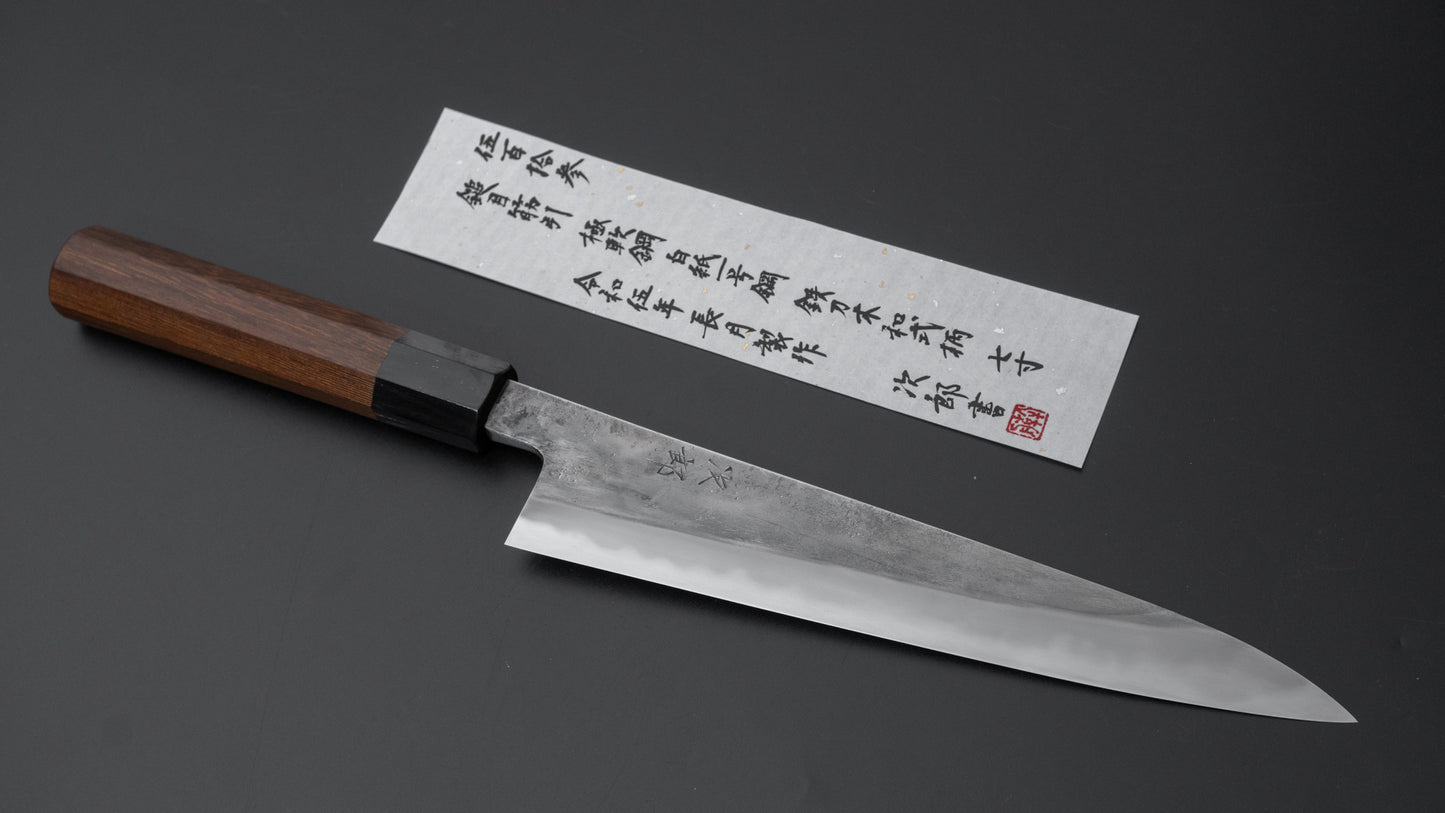 伍百拾参
鎚目筋引 極軟鋼 白紙一号鋼 鉄刀木和式柄 七寸
令和伍年 長月製作 次郎書